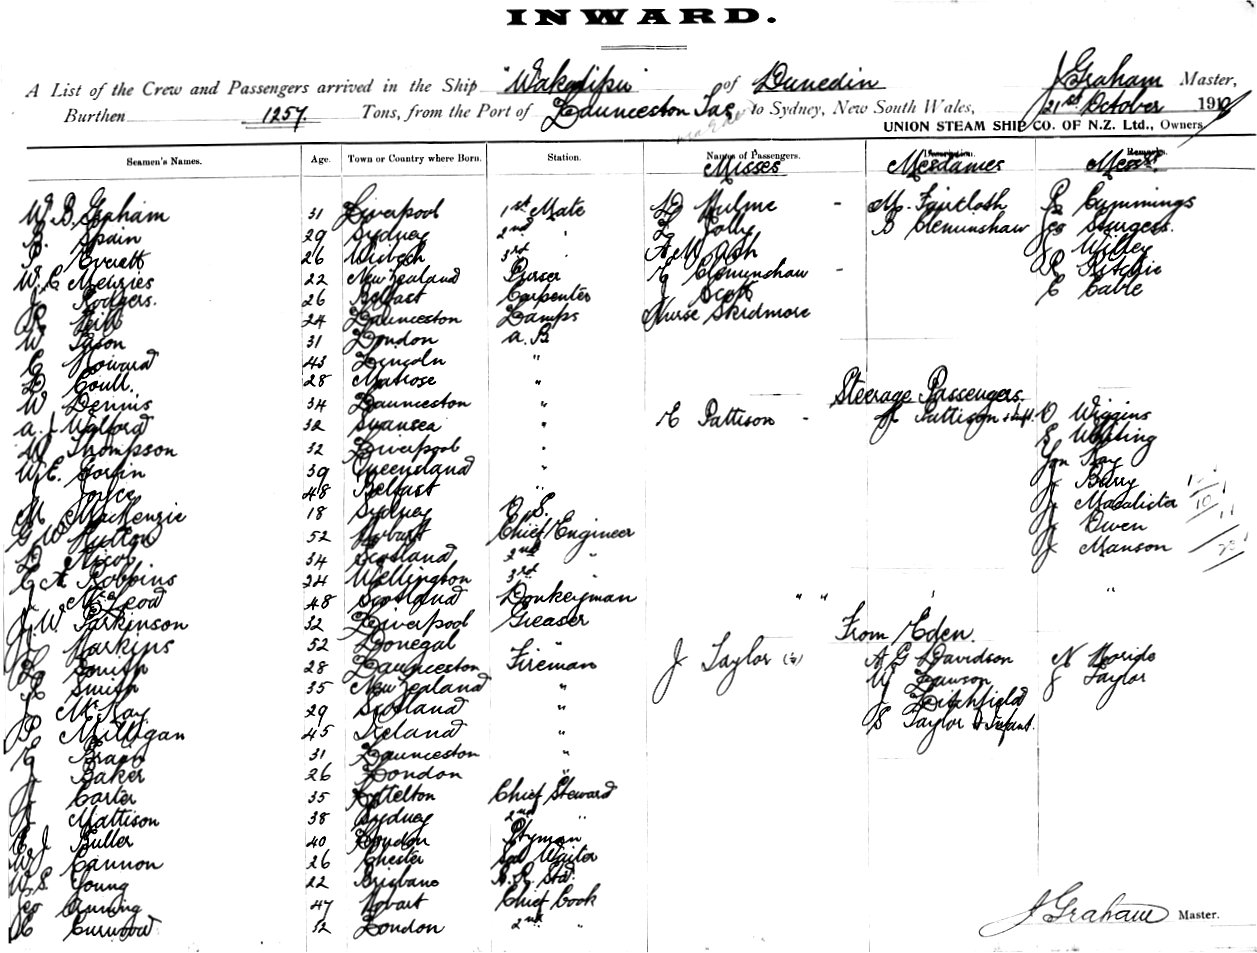 INWARD.
A List of the Crew and Passengers arrived in the Ship "Wakatipu" of Dunedin J Graham Master,
Burthen 1257 Tons, from the Port of Launceston Tas to Sydney, New South Wales, 21st October 191
UNION STEAM SHIP CO. OF N.Z. Ltd., Owners
Seamen's Names. Age. Town or Country where Born. Station. Names of Passengers.
Misses Mesdames Messrs
W. D. Graham 31 Liverpool 1st Mate L Hulme - M. Faircloth R Cummings
B. Spain 29 Sydney 2nd " L Jolly B Cleminshaw Geo Sturgess
P Everett 26 Wisbech 3rd " A M Ash J Willey
W. C Menzies 22 New Zealand Purser E Cleminshaw - R Ritchie
J Rodgers. 26 Belfast Carpenter J Scott C Cable
24 Launceston Lamps Nurse Skidmore
W Tason 31 London A. B
C Howard 43 Lincoln "
D Coull. 28 "
W Dennis 34 Launceston "
Steerage Passengers.
A. J Walford 32 Swansea " E Pattison - Pattison & Inft. O Wiggins
W Thompson 32 Liverpool " S Whiting
W. E. Gorfin 39 Queensland " Jon Kay
J Joyce 48 Belfast " J Barry
M Mackenzie 18 Sydney O. S. J Macalister
G W Hutton 52 Hobart Chief Engineer J Owen
D Nicol 34 Scotland 2nd " J Manson
G A Robbins 24 Wellington 3rd
J McLeod 48 Scotland Donkeyman " " " "
J W. Parkinson 32 Liverpool Greaser
From Eden.
J Harkins 52 Donegal "
L Smith 28 Launceston Fireman J Taylor A G Davidson N Boride
R Smith 35 New Zealand " W Lawson J Taylor
J McKay 29 Scotland " J Litchfield
P Milligan 45 Ireland " S Taylor & Infant.
E 31 Launceston "
J Baker 26 London "
J Carter 35 Lyttelton Chief Steward
J Mattison 38 Sydney 2nd "
C J Buller 40 London Ptyman
W J Cannon 26 Chester Sal Waiter
W. S. Young 22 Brisbane S. R. Std.
Geo Anning 47 Hobart Chief Cook
C Curwood 32 London 2nd "
J Graham Master.